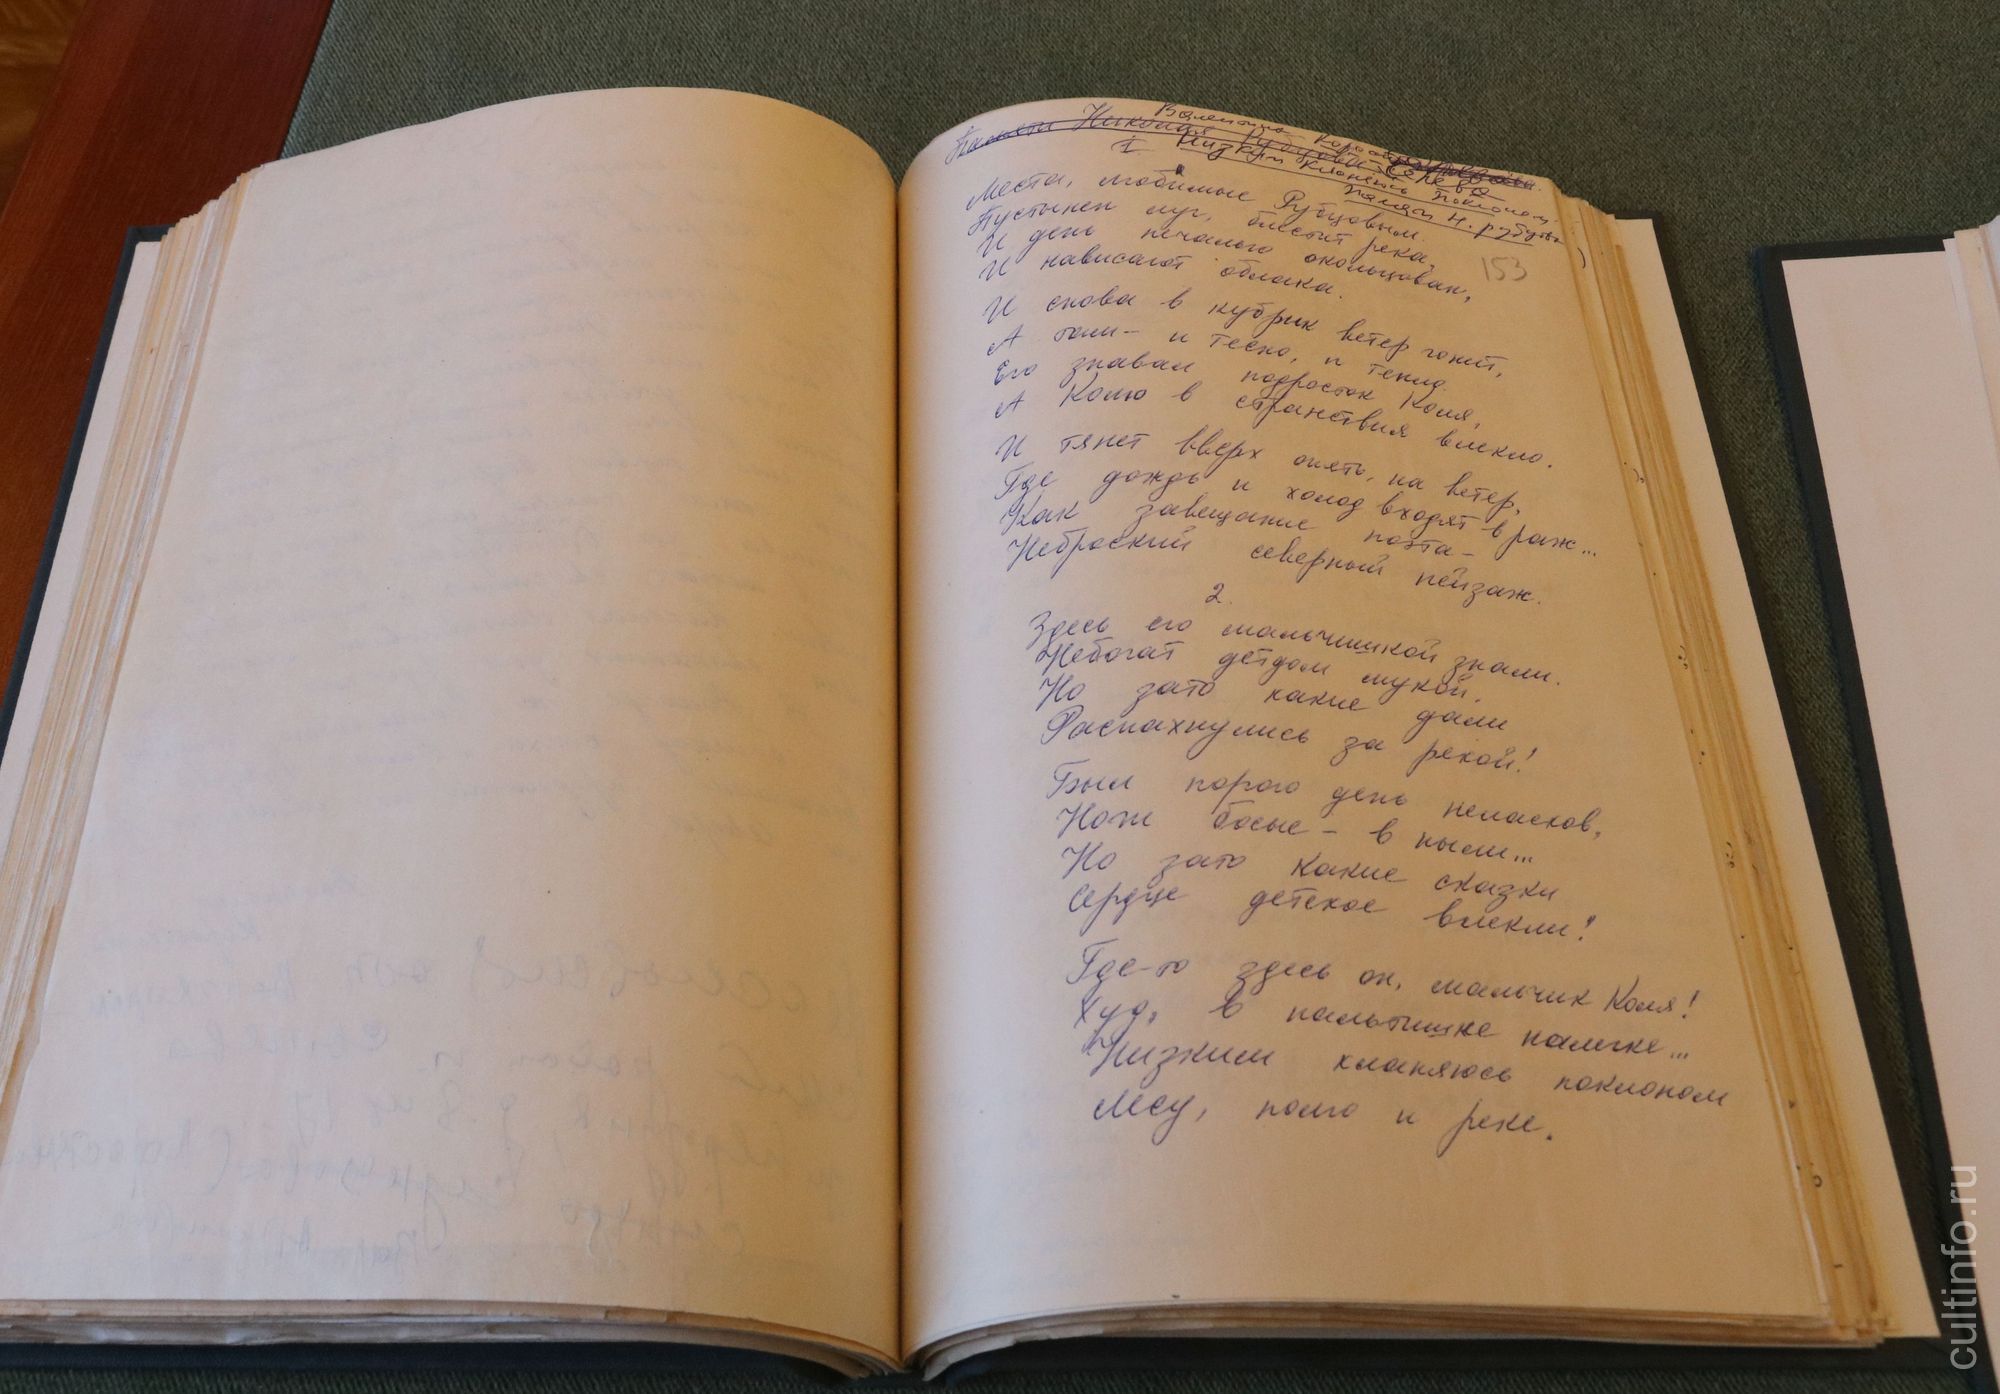 Валентина
Памяти Николая Рубцова
1. Низким кланяюсь поклоном
памяти Н. Рубцова
Места, любимые Рубцовым.
Пустынен луг, блестит река,
И день печалью окольцован,
И нависают облака.
153
И снова в кубрик ветер гонит,
А там – и тесно, и тепло.
Его знавал подросток Коля,
А Колю в странствия влекло.
И тянет вверх опять, на ветер,
Где дождь и холод входят в раж...
Как завещание поэта –
Неброский северный пейзаж.
2.
Здесь его мальчишкой знали.
Небогат детдом мукой.
Но зато какие дали
Распахнулись за рекой!
Был порою день неласков,
Ноги босые – в пыли...
Но зато какие сказки
Сердце детское влекли!
Где-то здесь он, мальчик Коля!
Худ, в пальтишке налегке...
Низким кланяюсь поклоном
Лесу, полю и реке.
cultinfo.ru